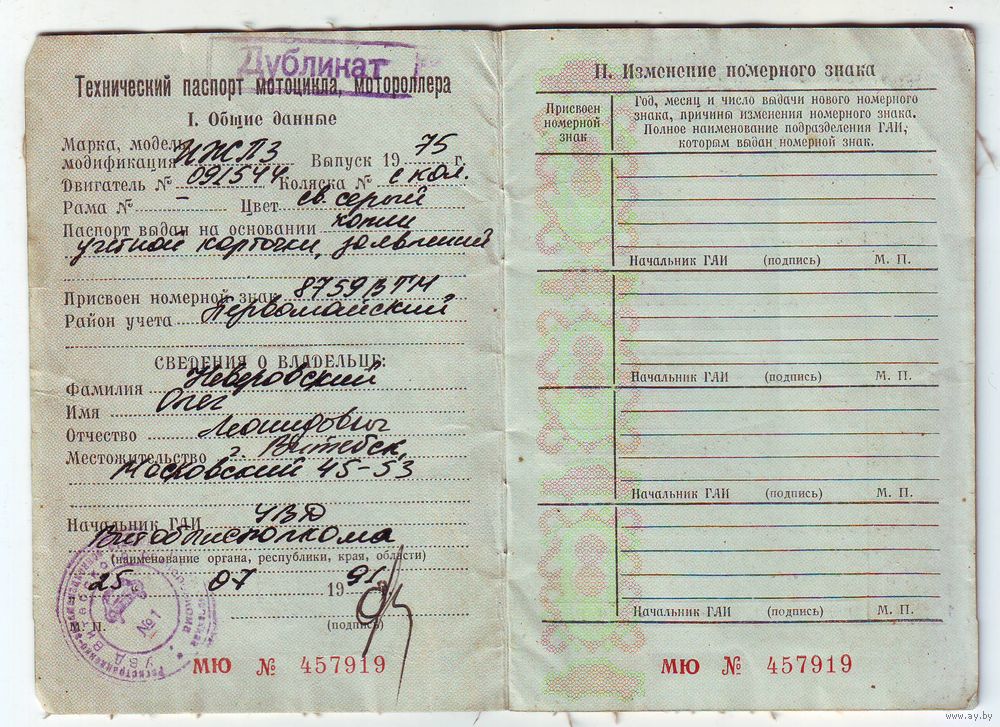 Дубликат
Технический паспорт мотоцикла, мотороллера
I. Общие данные
Марка, модель,
модификация ИЖПЗ Выпуск 19 75 г.
Двигатель № 091544 Коляска № с кол.
Рама № – Цвет св. серый
Паспорт выдан на основании копии
учетной карточки, заявлений
Присвоен номерной знак 8759 ВТМ
Район учета Первомайский
СВЕДЕНИЯ О ВЛАДЕЛЬЦЕ:
Фамилия Неверовский
Имя Олег
Отчество Леонидович
Местожительство г. Витебск,
Московский 45-53
Начальник ГАИ УВД
Витоблисполкома
(наименование органа, республики, края, области)
25 07 19 91
М. П. (подпись)
№ 1
УВД
МЮ № 457919
II. Изменение номерного знака
Присвоен номерной знак
Год, месяц и число выдачи нового номерного
знака, причины изменения номерного знака.
Полное наименование подразделения ГАИ,
которым выдан номерной знак.
Начальник ГАИ (подпись) М. П.
Начальник ГАИ (подпись) М. П.
Начальник ГАИ (подпись) М. П.
Начальник ГАИ (подпись) М. П.
МЮ № 457919
www.ay.by